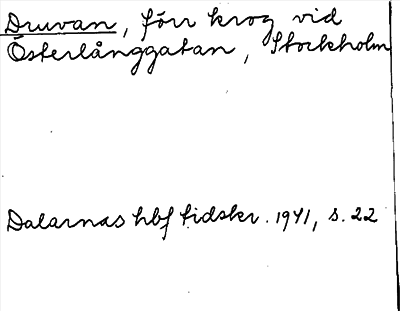 Druvan, förr krog vid
Österlånggatan, Stockholm
Dalarnas hbf tidskr. 1941, s. 22